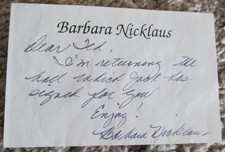 Barbara Nicklaus
Dear Ted,
I'm returning the
ball which Jack has
signed for you!
Enjoy!
Barbara Nicklaus